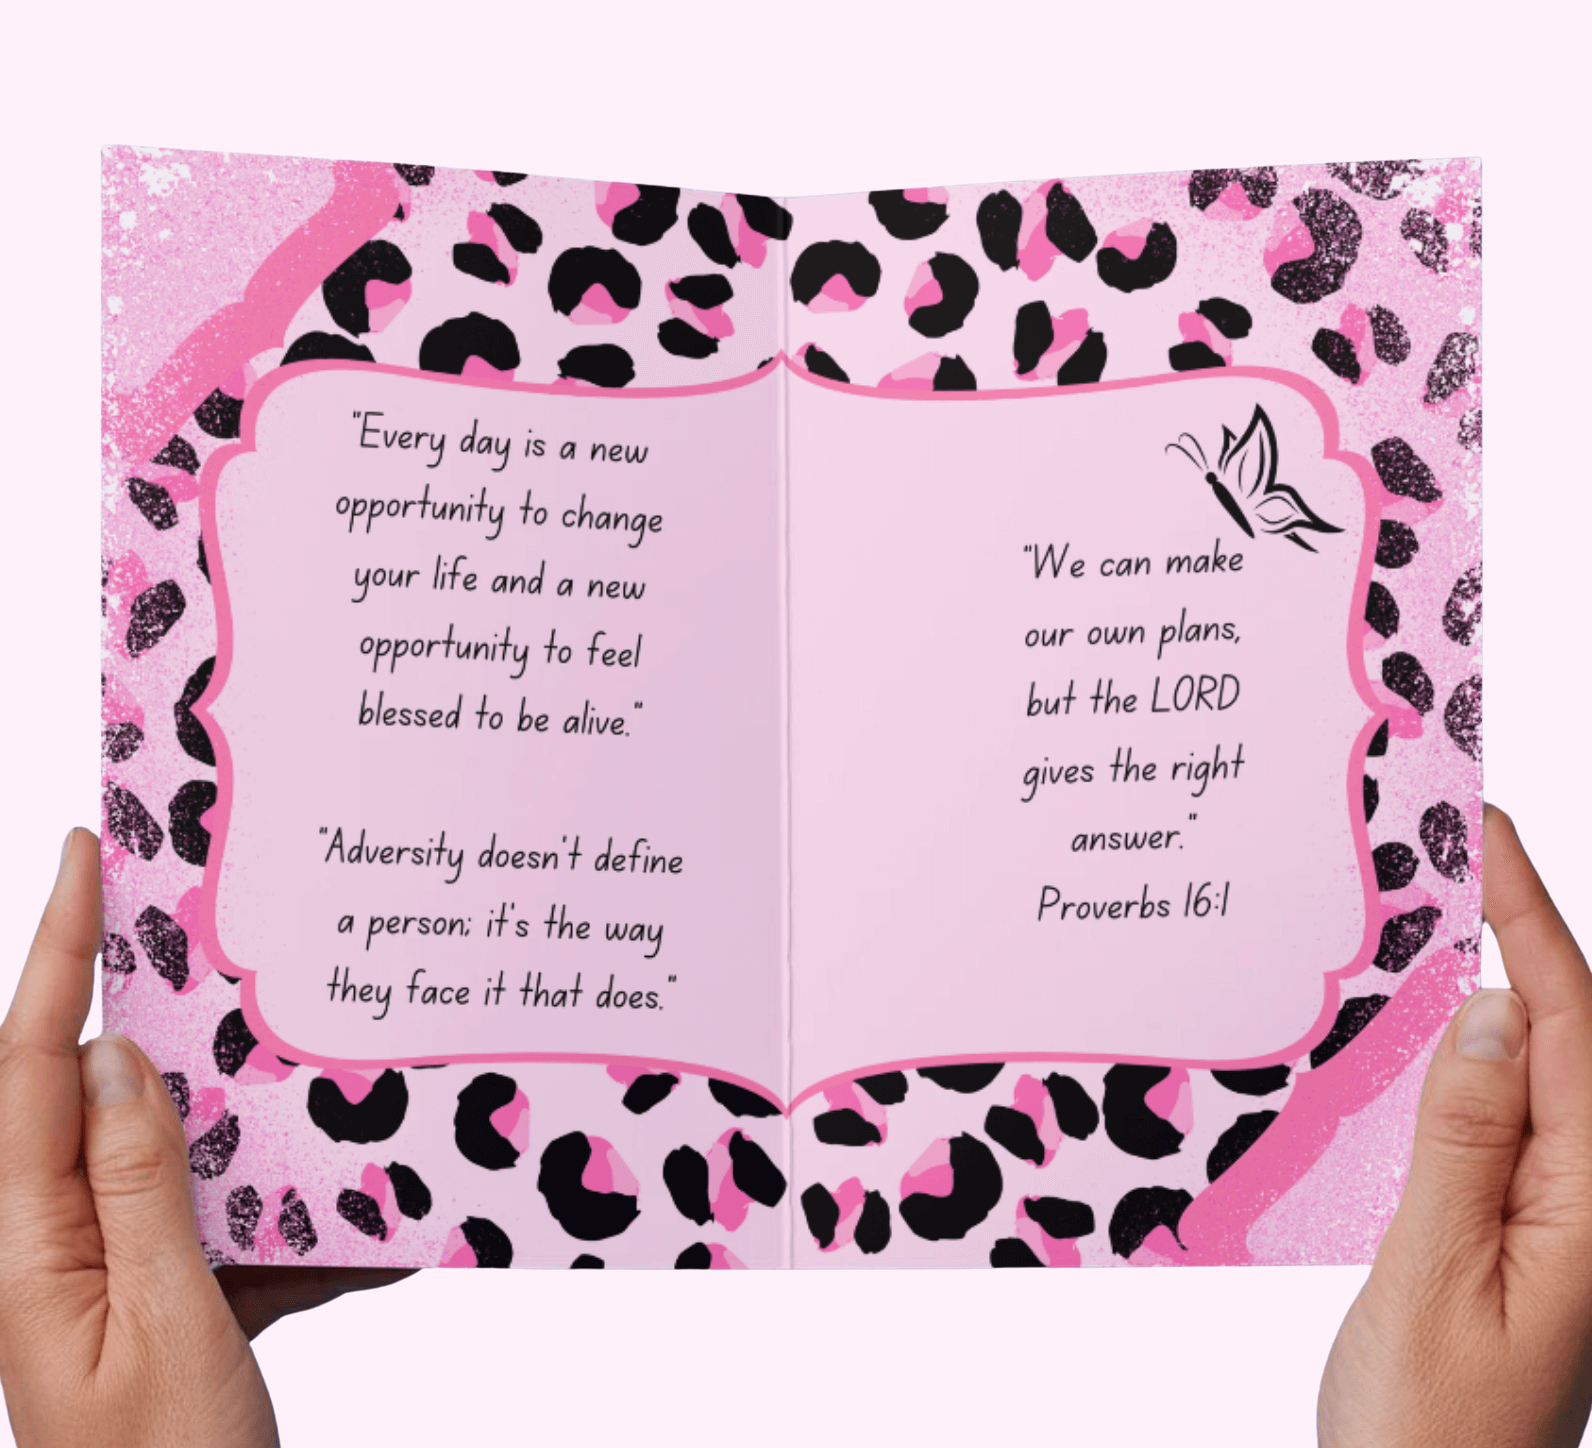 "Every day is a new
opportunity to change
your life and a new
opportunity to feel
blessed to be alive."
"Adversity doesn't define
a person; it's the way
they face it that does."
"We can make
our own plans,
but the LORD
gives the right
answer."
Proverbs 16:1